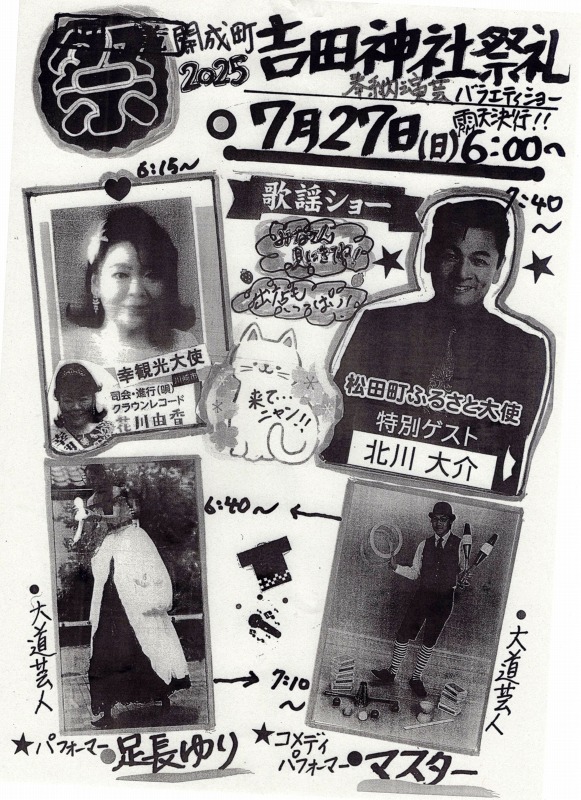 祭
開成町
2025
吉田神社祭礼
奉納演芸
バラエティショー
7月27日(日)6:00〜
雨天決行!!
6:15〜
歌謡ショー
7:40
〜
みなさん
見にき(て)ね!
出店も
いっぱい!
幸観光大使
川崎市
司会・進行(唄)
クラウンレコード
花川由香
来て…
ニャン!!
松田町ふるさと大使
特別ゲスト
北川 大介
6:40〜
大道芸人
7:10
〜
大道芸人
★パフォーマー
足長ゆり
★コメディ
パフォーマー
マスター